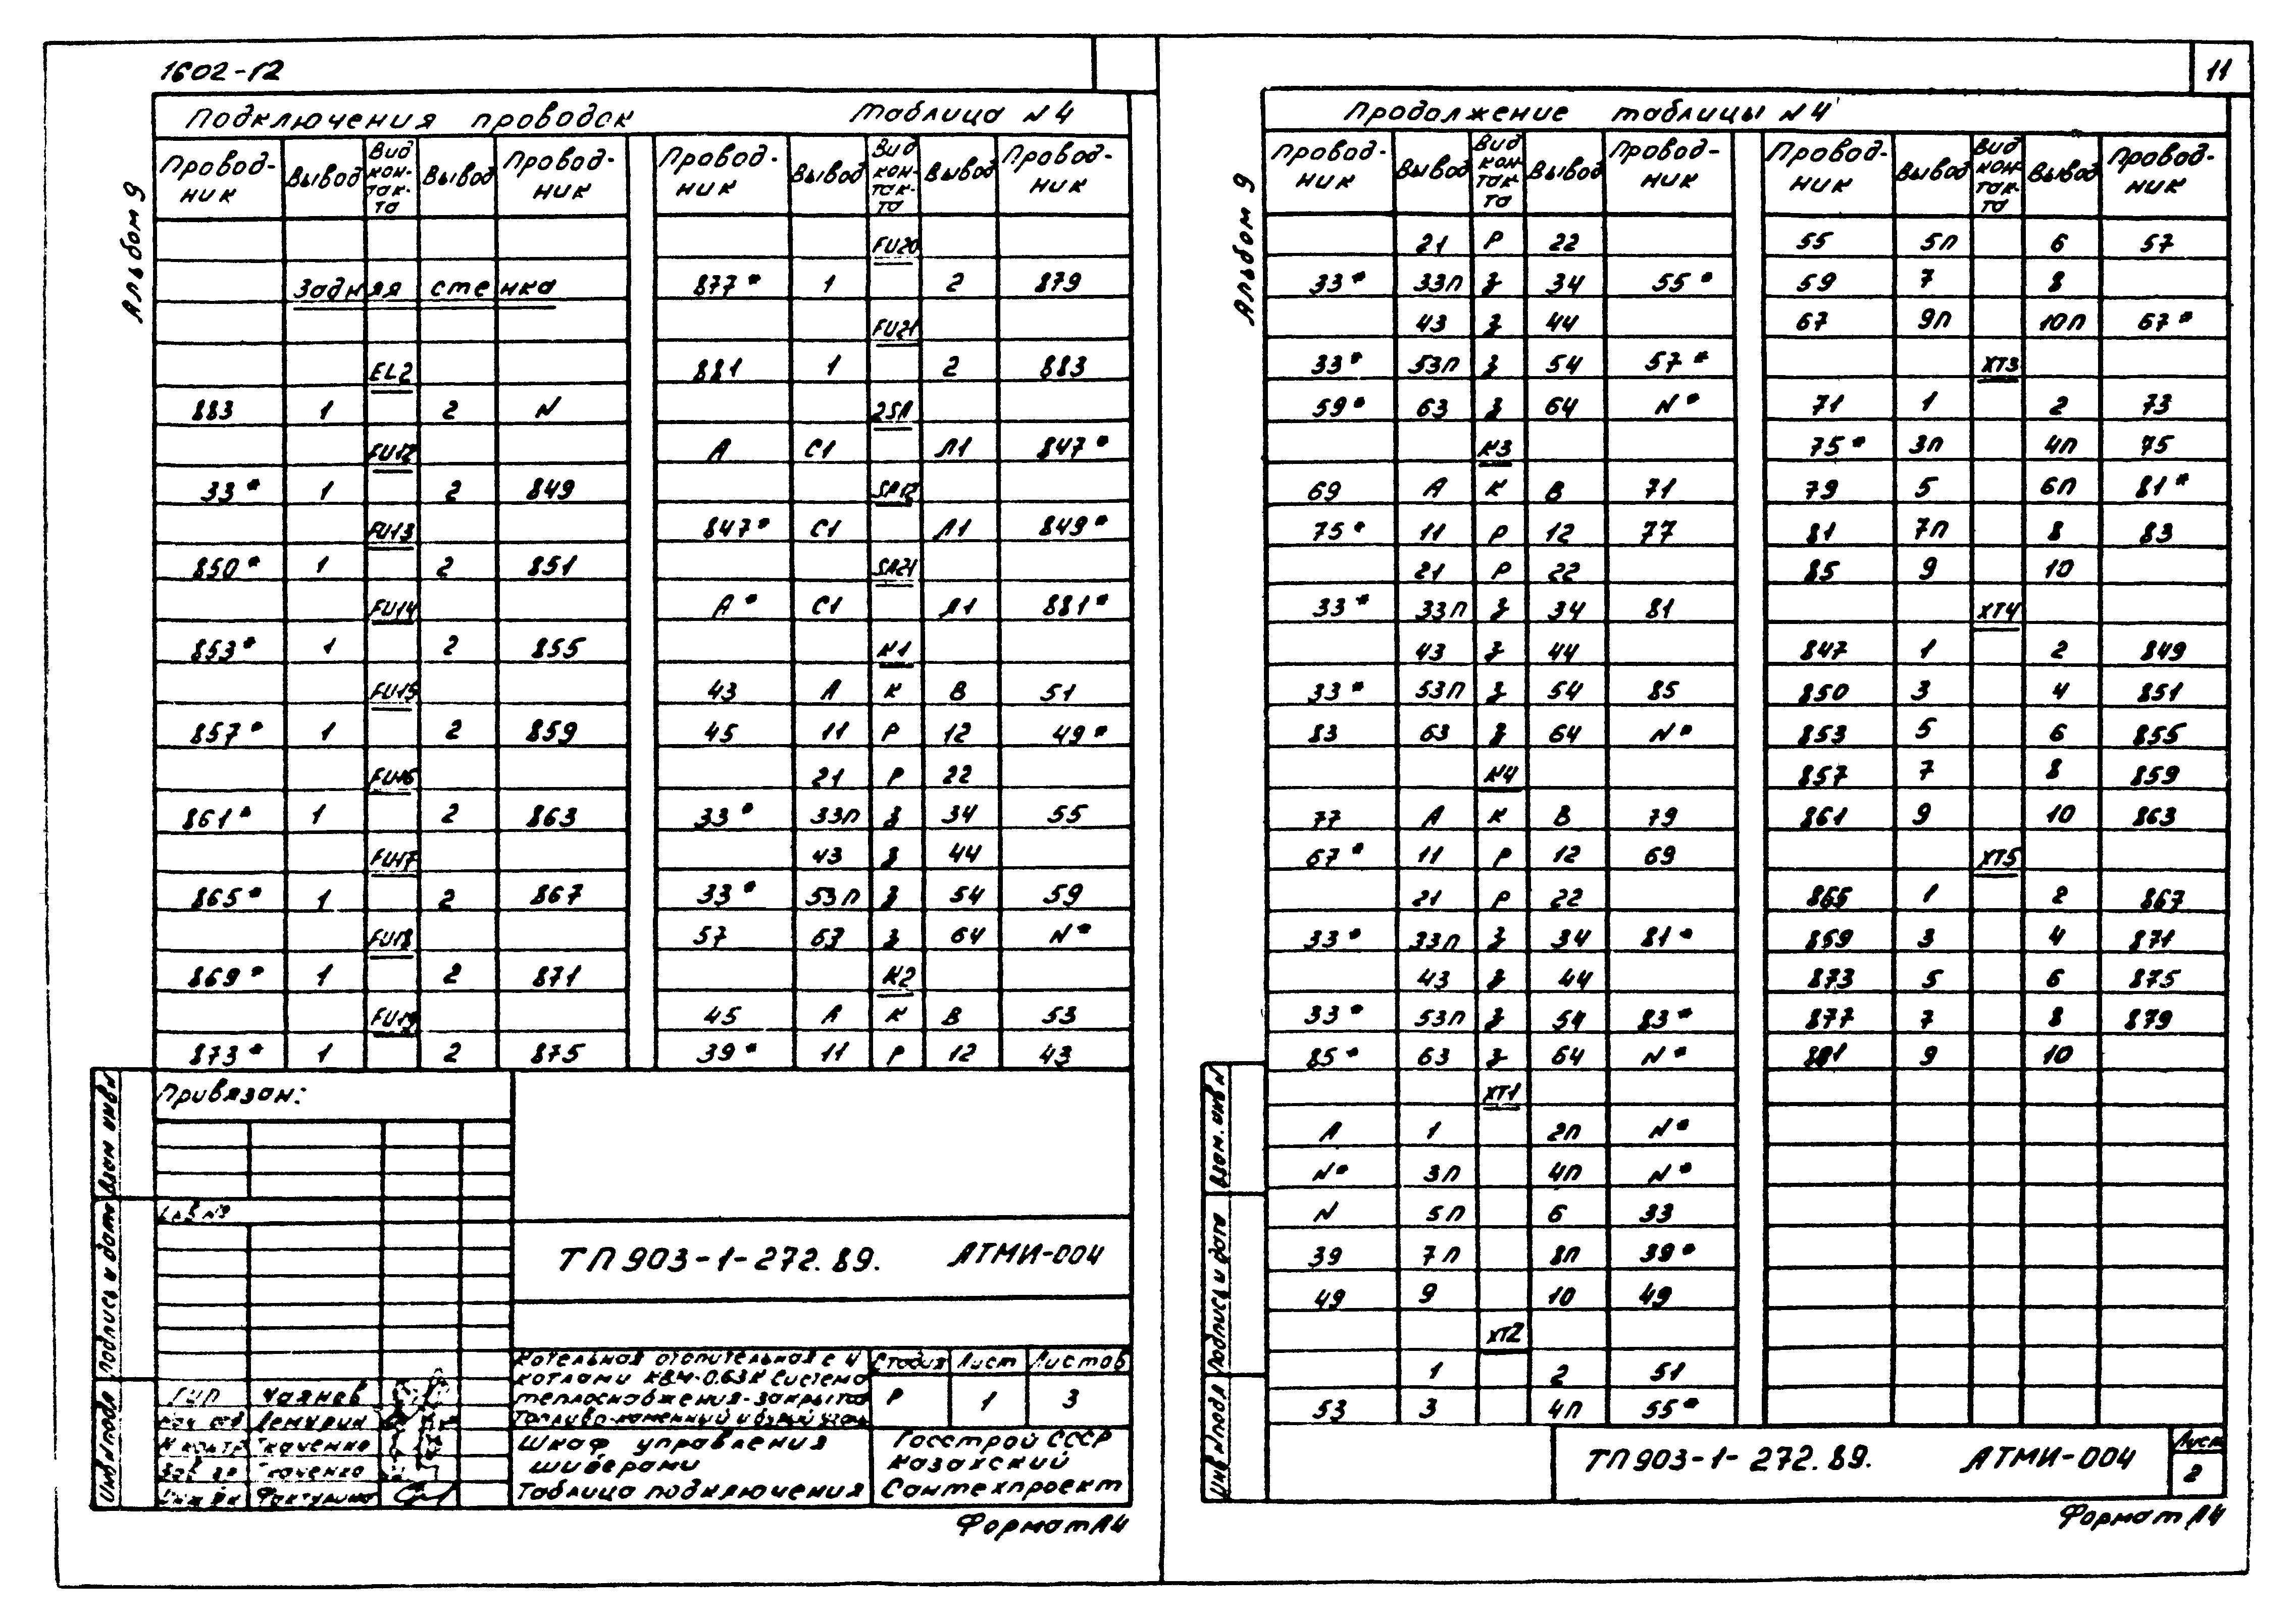 1602-12
11
Альбом 9
Подключения проводок Таблица N 4
Провод-ник Вывод Вид кон-так-та Вывод Провод-ник
Задняя стенка
EL2
883 1 2 N
FU12
33* 1 2 849
FU13
850* 1 2 851
FU14
853* 1 2 855
FU15
857* 1 2 859
FU16
861* 1 2 863
FU17
865* 1 2 867
FU18
869* 1 2 871
FU19
873* 1 2 875
Провод-ник Вывод Вид кон-так-та Вывод Провод-ник
FU20
877* 1 2 879
FU21
881 1 2 883
2SA
А С1 Л1 847*
SA12
847* С1 Л1 849*
SA21
А* С1 Л1 881*
К1
43 А К В 51
45 11 Р 12 49*
21 Р 22
33* 33п З 34 55
43 З 44
33* 53п З 54 59
57 63 З 64 N*
К2
45 А К В 53
39* 11 Р 12 43
Привязан:
Инв №
ТП 903-1-272.89. АТМИ-004
Котельная отопительная с 4
котлами КВм-0.63К Система
теплоснабжения-закрытая
Топливо-каменный и бурый уголь
Стадия Лист Листов
Р 1 3
ГИП Чаянев
Нач. отд Демурин
Н контр Ткаченко
Зав. гр Ткаченко
Шкаф управления
шиберами
Таблица подключения
Госстрой СССР
Казахский
Сантехпроект
Взам инв N
Подпись и дата
Инв N подл
Формат А4
Альбом 9
Продолжение таблицы N 4
Провод-ник Вывод Вид кон-так-та Вывод Провод-ник
21 Р 22
33* 33п З 34 55*
43 З 44
33* 53п З 54 57*
59* 63 З 64 N*
К3
69 А К В 71
75* 11 Р 12 77
21 Р 22
33* 33п З 34 81
43 З 44
33* 53п З 54 85
83 63 З 64 N*
К4
77 А К В 79
67* 11 Р 12 69
21 Р 22
33* 33п З 34 81*
43 З 44
33* 53п З 54 83*
85* 63 З 64 N*
ХТ1
А 1 2п N*
N* 3п 4п N*
N 5п 6 33
39 7п 8п 39*
49 9 10 49
ХТ2
1 2 51
53 3 4п 55*
Провод-ник Вывод Вид кон-так-та Вывод Провод-ник
55 5п 6 57
59 7 8
67 9п 10п 67*
ХТ3
71 1 2 73
75* 3п 4п 75
79 5 6п 81*
81 7п 8 83
85 9 10
ХТ4
847 1 2 849
850 3 4 851
853 5 6 855
857 7 8 859
861 9 10 863
ХТ5
865 1 2 867
869 3 4 871
873 5 6 875
877 7 8 879
881 9 10
Взам. инв N
Подпись и дата
Инв N подл
ТП 903-1-272.89. АТМИ-004
Лист
2
Формат А4